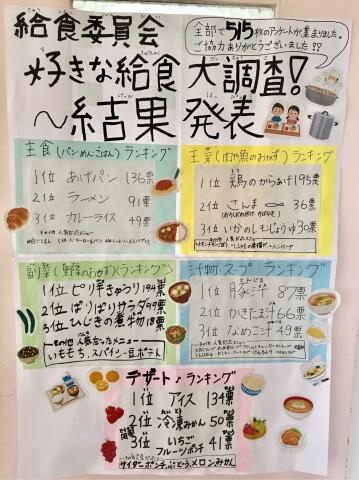 給食委員会
全部で515枚のアンケートが集まりました。
ご協力ありがとうございました!!
好きな給食 大調査!
～結果 発表
主食(パン・めん・ごはん)ランキング
1位 あげパン 136票
2位 ラーメン 91票
3位 カレーライス 49票
主菜(肉や魚のおかず)ランキング
1位 鶏のからあげ 195票
2位 さんま 36票
3位 いかのしモンじょうゆ 30票
副菜(野菜のおかず)ランキング
1位 ピリ辛きゅうり 194票
2位 ぱりぱりサラダ 99票
3位 ひじきの煮物 18票
その他 人気だったメニュー
いももち、スパイシー豆ポテト
汁物・スープランキング
1位 豚汁 87票
2位 かきたま汁 66票
3位 なめこ汁 49票
デザート♪ランキング
1位 アイス 134票
2位 冷凍みかん 50票
3位 いちご 41票
フルーツポンチ
サイダーポンチ、ぶどう、メロン、みかん